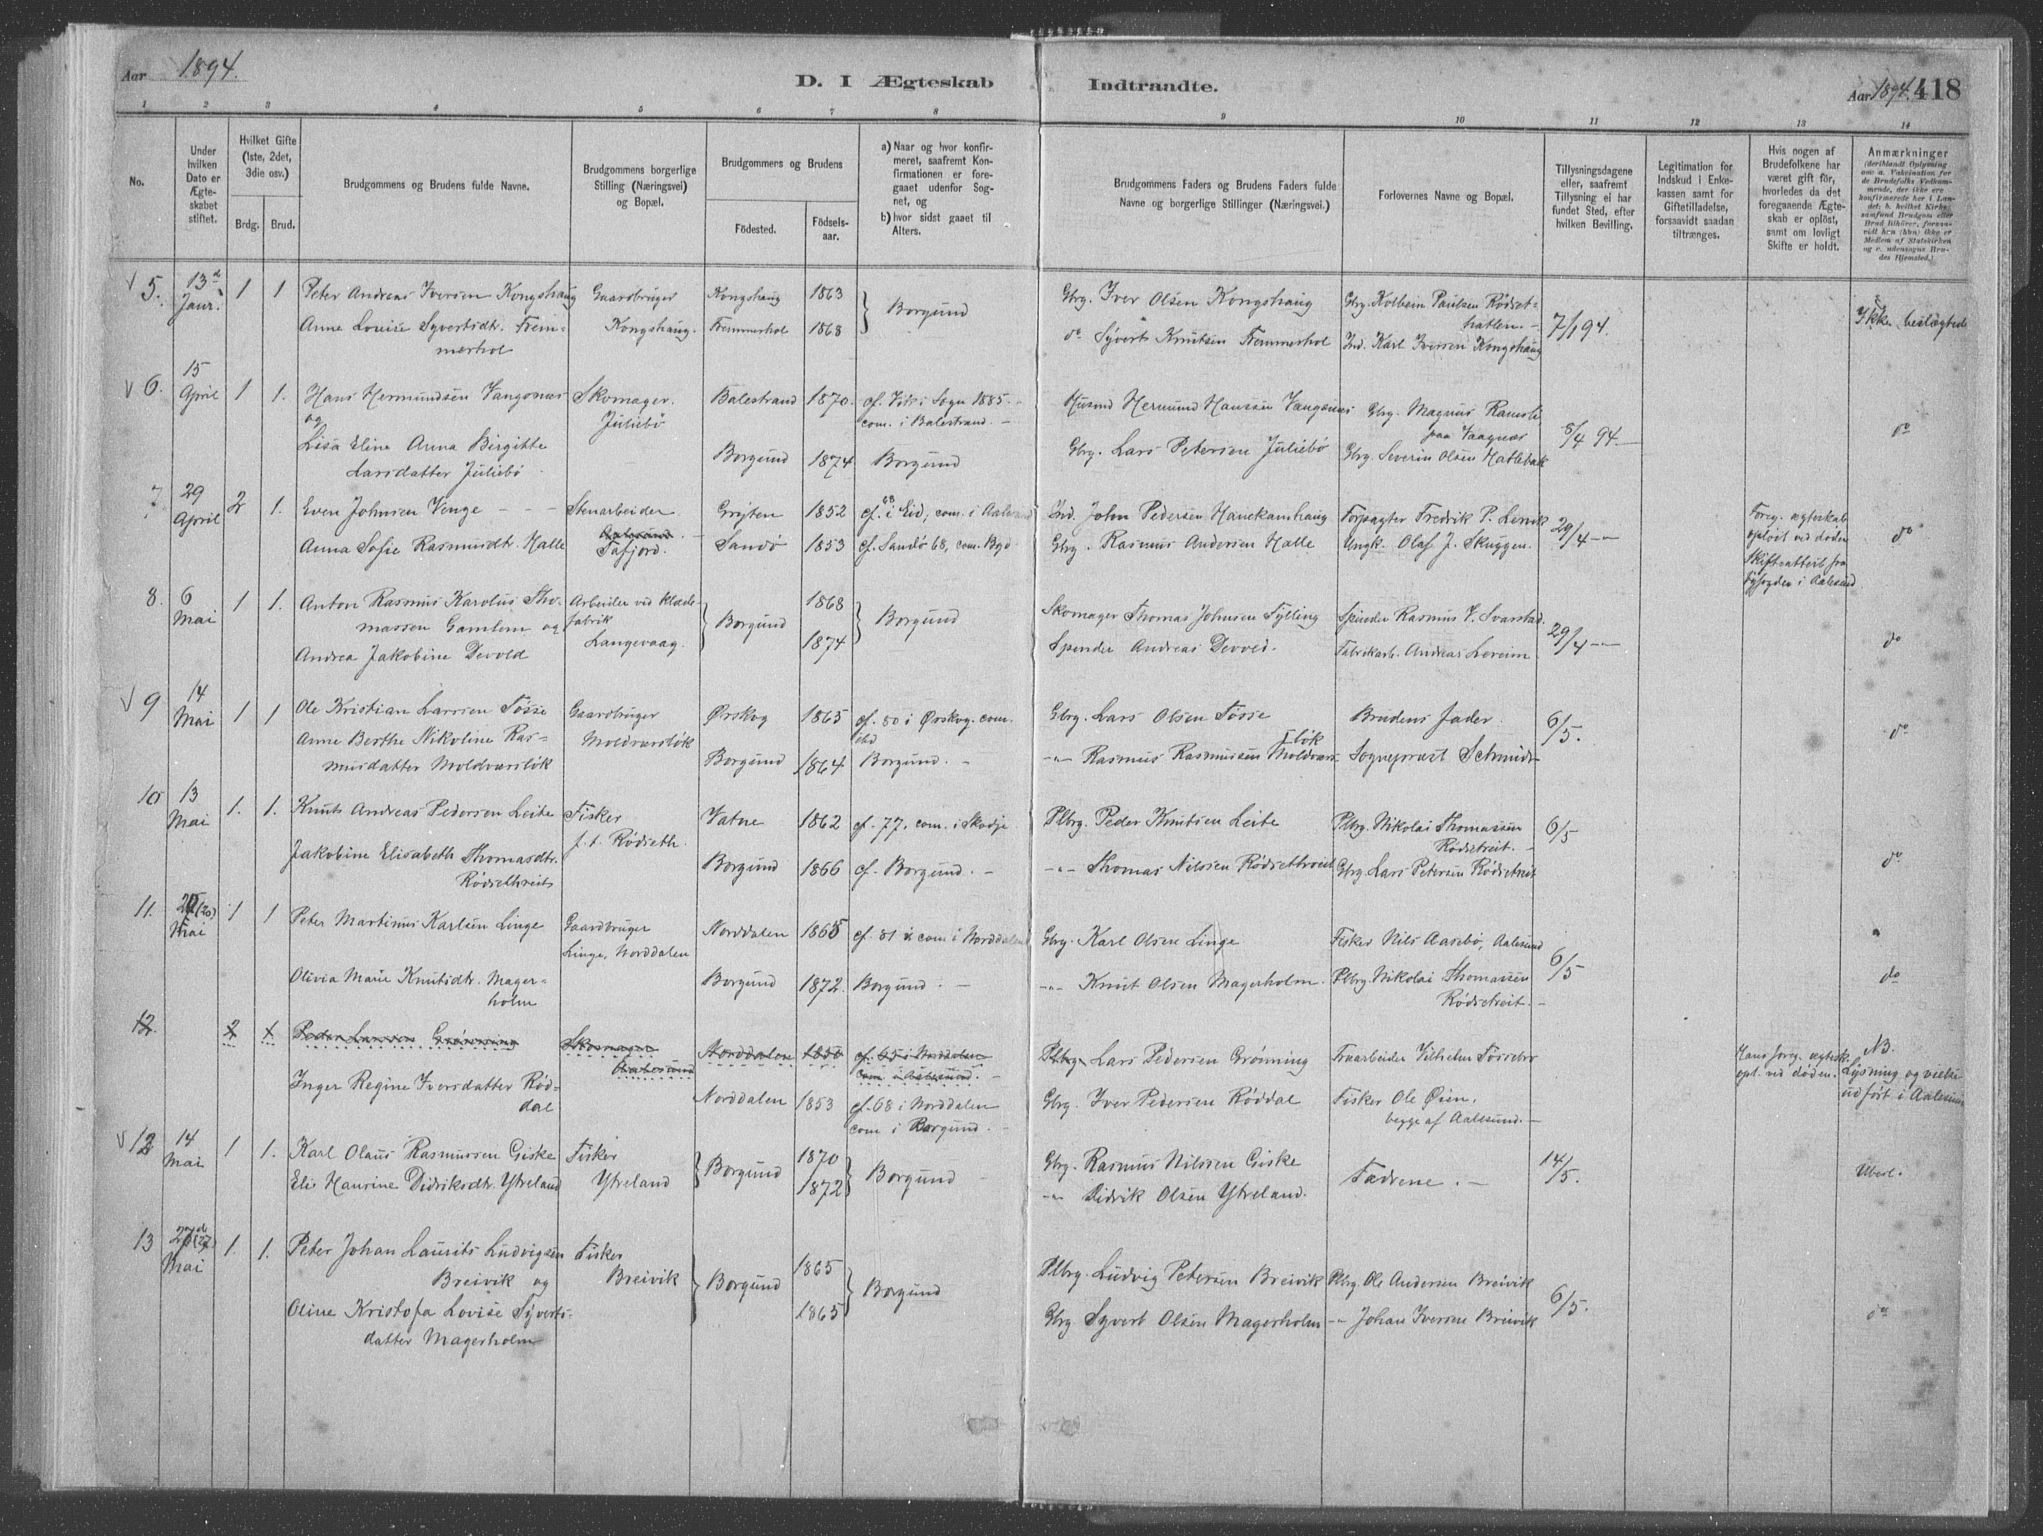 Aar 1894.
D. I Ægteskab Indtrandte.
Aar 1894. 418
1 2 3 4 5 6 7 8 9 10 11 12 13 14
No.
Under hvilken Dato er Ægteskabet stiftet.
Hvilket Gifte (1ste, 2det, 3die osv.)
Brdg. Brud.
Brudgommens og Brudens fulde Navne.
Brudgommens borgerlige Stilling (Næringsvei) og Bopæl.
Brudgommens og Brudens
Födested. Födselsaar.
a) Naar og hvor konfirmeret, saafremt Konfirmationen er foregaaet udenfor Sognet, og
b) hvor sidst gaaet til Alters.
Brudgommens Faders og Brudens Faders fulde Navne og borgerlige Stillinger (Næringsvei.)
Forlovernes Navne og Bopæl.
Tillysningsdagene eller, saafremt Tillysning ei har fundet Sted, efter hvilken Bevilling.
Legitimation for Indskud i Enkekassen samt for Giftetilladelse, forsaavidt saadan tiltrænges.
Hvis nogen af Brudefolkene har været gift för, hvorledes da det foregaaende Ægteskab er oplöst, samt om lovligt Skifte er holdt.
Anmærkninger
5. 13de Janr. 1 1 Peter Andreas Iversen Kongshaug Gaardbruger Kongshaug 1863 Borgund Gbrg. Iver Olsen Kongshaug Gbrg. Kolbein Paulsen Rødset-
hatlen. 7/1 94. Ikke beslægtede
Anne Louise Syvertsdt. Frem- Kongshaug. Fremmerhol 1868 do Syvert Knutsen Fremmerhol Ind. Karl Iversen Kongshaug
merhol
6. 15 April 1 1. Hans Hermundsen Vangsnes Skomager. Balestrand 1870. cf. Vik i Sogn 1885. Husmd Hermund Hanssen Vangsnes Gbrg. Magnus Ramsli
og Juliebö com. i Balestrand. paa Vaagnæs 8/4 94. do
Lisa Eline Anna Birgitte Borgund 1874 Borgund Gbrg. Lars Petersen Juliebö Gbrg. Severin Olsen Hatlebak
Larsdatter Juliebö
7. 29 April 2 1. Even Johnsen Venge Stenarbeider Grÿten 1852 cf. 68 i Eid, com. i Aalesund Ind. John Pedersen Hanekamhaug Forpagter Fredrik P. Lervik 29/4 Foreg. ægteskab
Anna Sofie Rasmusdt. Halle Aalesund Tafjord. Sandö 1853 cf. Sandö 68, com. Bgd Gbrg. Rasmus Andersen Halle Ungk. Olaf J. Skuggen. opløst ved døden do
Skifteattest fra
Byfogden i Aalesund
8. 6 Mai 1 1. Anton Rasmus Karolus Tho- Arbeider ved Klæde- 1868 Skomager Thomas Johnsen Sylling Spinder Rasmus V. Svarstad.
massen Gamlem og fabrik Borgund Borgund 29/4 do
Andrea Jakobine Devold Langevaag. 1874 Spinder Andreas Devold. Fabrikarb. Andreas Lereim
9 14 Mai 1 1 Ole Kristian Larssen Tösse Gaardbruger Ørskog 1865 cf. 80 i Ørskog. com. ibd Gbrg. Lars Olsen Tösse Brudens fader. 6/5. do
Anne Berthe Nikoline Ras- Moldværslök
musdatter Moldværslök Borgund 1864 Borgund. Rasmus Rasmussen Moldværslök Sognepræst Schmidt
10 13 Mai 1. 1. Knut Andreas Pedersen Leite Fisker Vatne 1862 cf. 77, com. i Skodje Plbrg. Peder Knutsen Leite Plbrg. Nikolai Thomassen 6/5
f. t. Rödseth. Rödsetreit.
Jakobine Elisabeth Thomasdt. Borgund 1866 cf. Borgund. Thomas Nilssen Rödsethreit Gbrg. Lars Petersen Rödsetreit do
Rödsethreit
11. (20) Mai 1 1 Peter Martinus Karlsen Linge Gaardbruger Norddalen 1865 cf. 81 & com i Norddalen Gbrg. Karl Olsen Linge Fisker Nils Aasebö, Aalesund
Linge, Norddalen 6/5
Olivia Marie Knutsdt. Mager- Borgund 1872. Borgund. Knut Olsen Magerholm. Plbrg. Nikolai Thomassen do
holm Rödsetreit.
12. 2 1 Peder Larsen Grönning Skomager Norddalen 1850 cf. 65 i Norddalen Plbrg. Lars Pedersen Grönning Træarbeider Vilhelm Fossebro Hans foreg. ægtesk. NB.
Aalesund com. i Aalesund. opl. ved döden. Lysning og vielse
Inger Regine Iversdatter Röd- Norddalen 1853 cf. 68 i Norddalen Gbrg. Iver Pedersen Röddal Fisker Ole Øien, udført i Aalesund
dal com i Borgund. begge af Aalesund.
12 14 Mai 1 1. Karl Olaus Rasmussen Giske Fisker Borgund 1870 Borgund Gbrg. Rasmus Nilssen Giske Fædrene. 14/5. Ubesl.
Elie Haurine Didriksdt. Ytreland Ytreland 1872 Didrik Olsen Ytreland.
13 (27) Mai 1. 1. Peter Johan Laurits Ludvigsen Fisker 1865 Plbrg. Ludvig Petersen Breivik Plbrg. Ole Andersen Breivik
Breivik og Breivik Borgund Borgund 6/5. do
Oline Kristofa Lovise Syverts- 1865 Gbrg Syvert Olsen Magerholm Johan Iversen Breivik
datter Magerholm